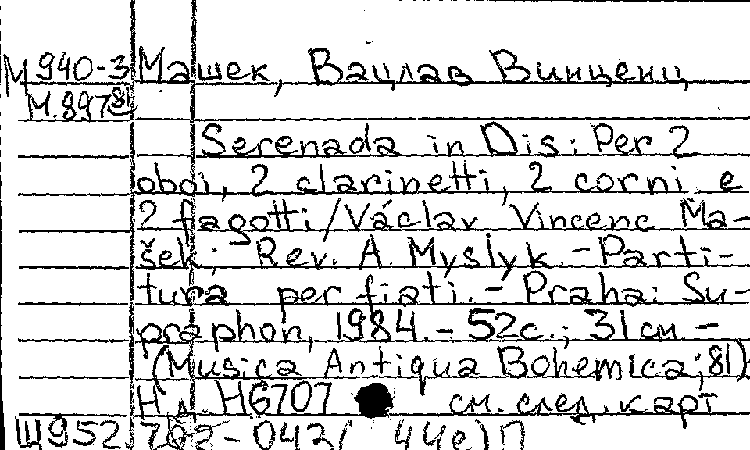 М940-3 Машек, Вацлав Винценц
М.897 81
Serenada in Dis: Per 2
oboi, 2 clarinetti, 2 corni e
2 fagotti/Václav Vincenc Ma-
šek; Rev. A Myslyk.-Parti-
tura per fiati.-Praha: Su-
praphon, 1984.-52с.; 31см.-
(Musica Antiqua Bohemica; 81)
Н.д. H6707 см. след. карт
Ш952